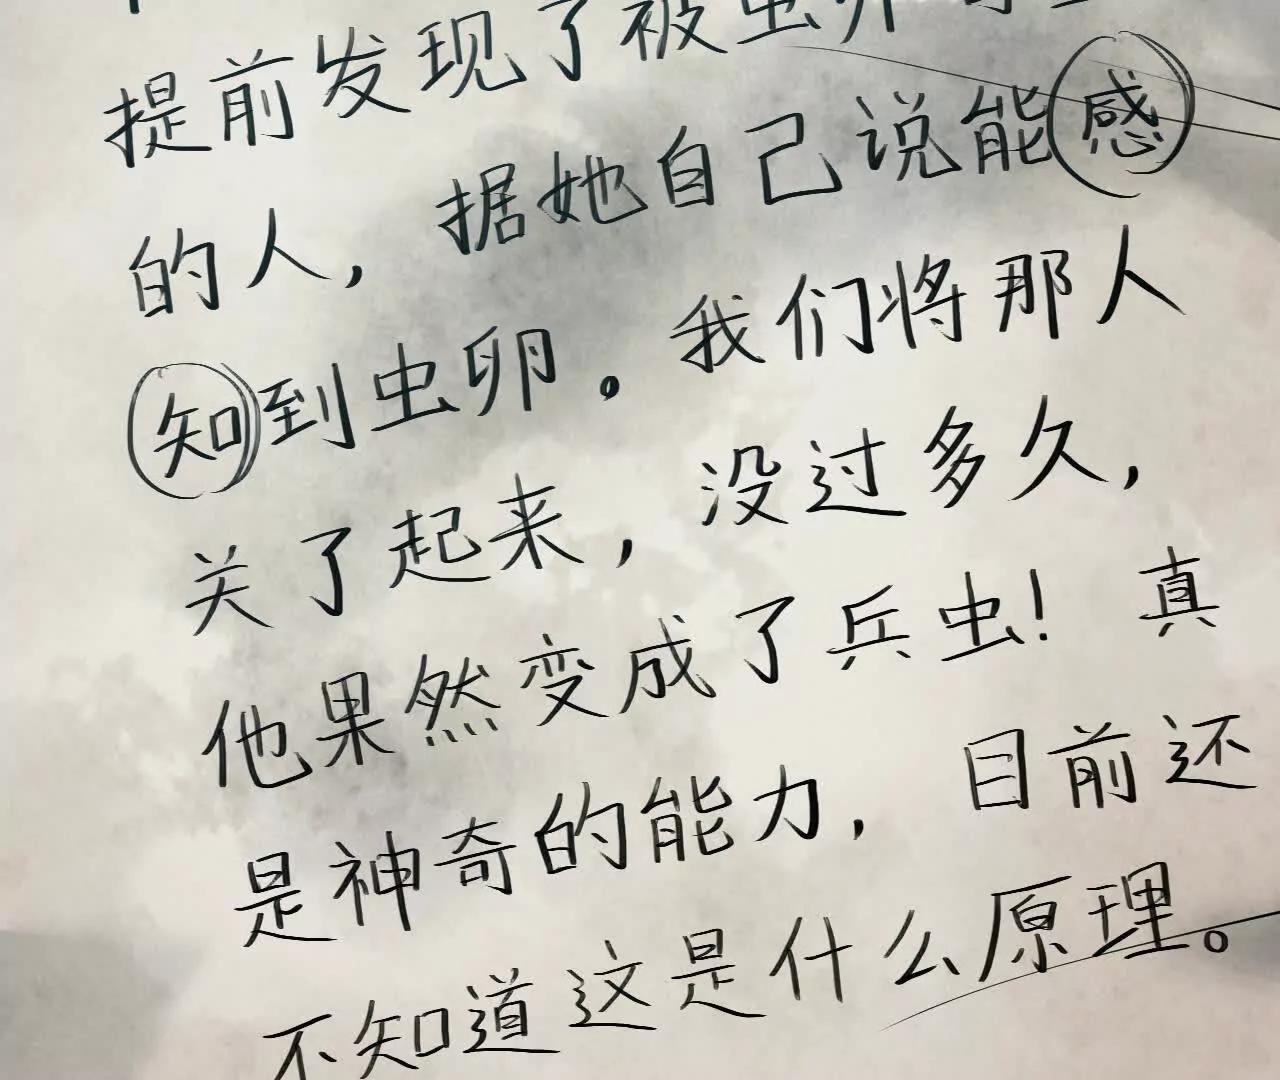 提前发现了被虫卵
的人，据她自己说能感
知到虫卵。我们将那人
关了起来，没过多久，
他果然变成了兵虫！真
是神奇的能力，目前还
不知道这是什么原理。